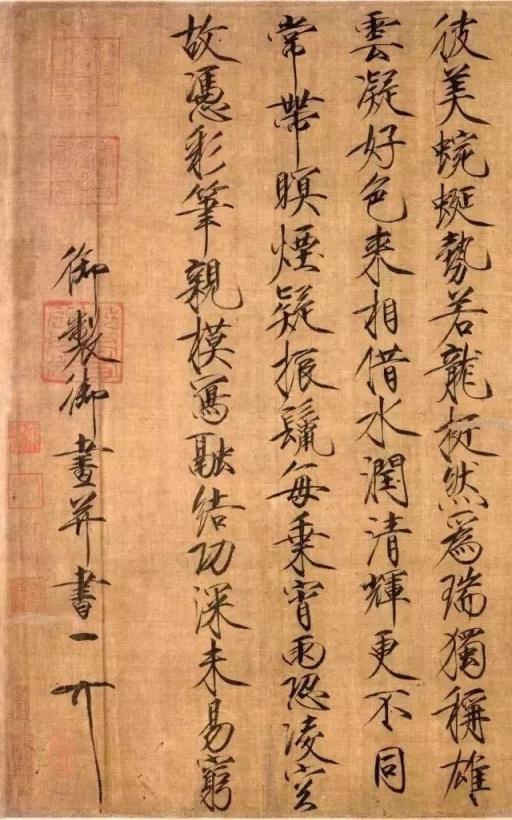 彼美蜿蜒勢若龍挺然爲瑞獨稱雄
雲凝好色来相借水潤清輝更不同
常帶瞑煙疑振鬣每乗宵雨恐凌空
故憑彩筆親模寫融結功深未易窮
御製御畫并書